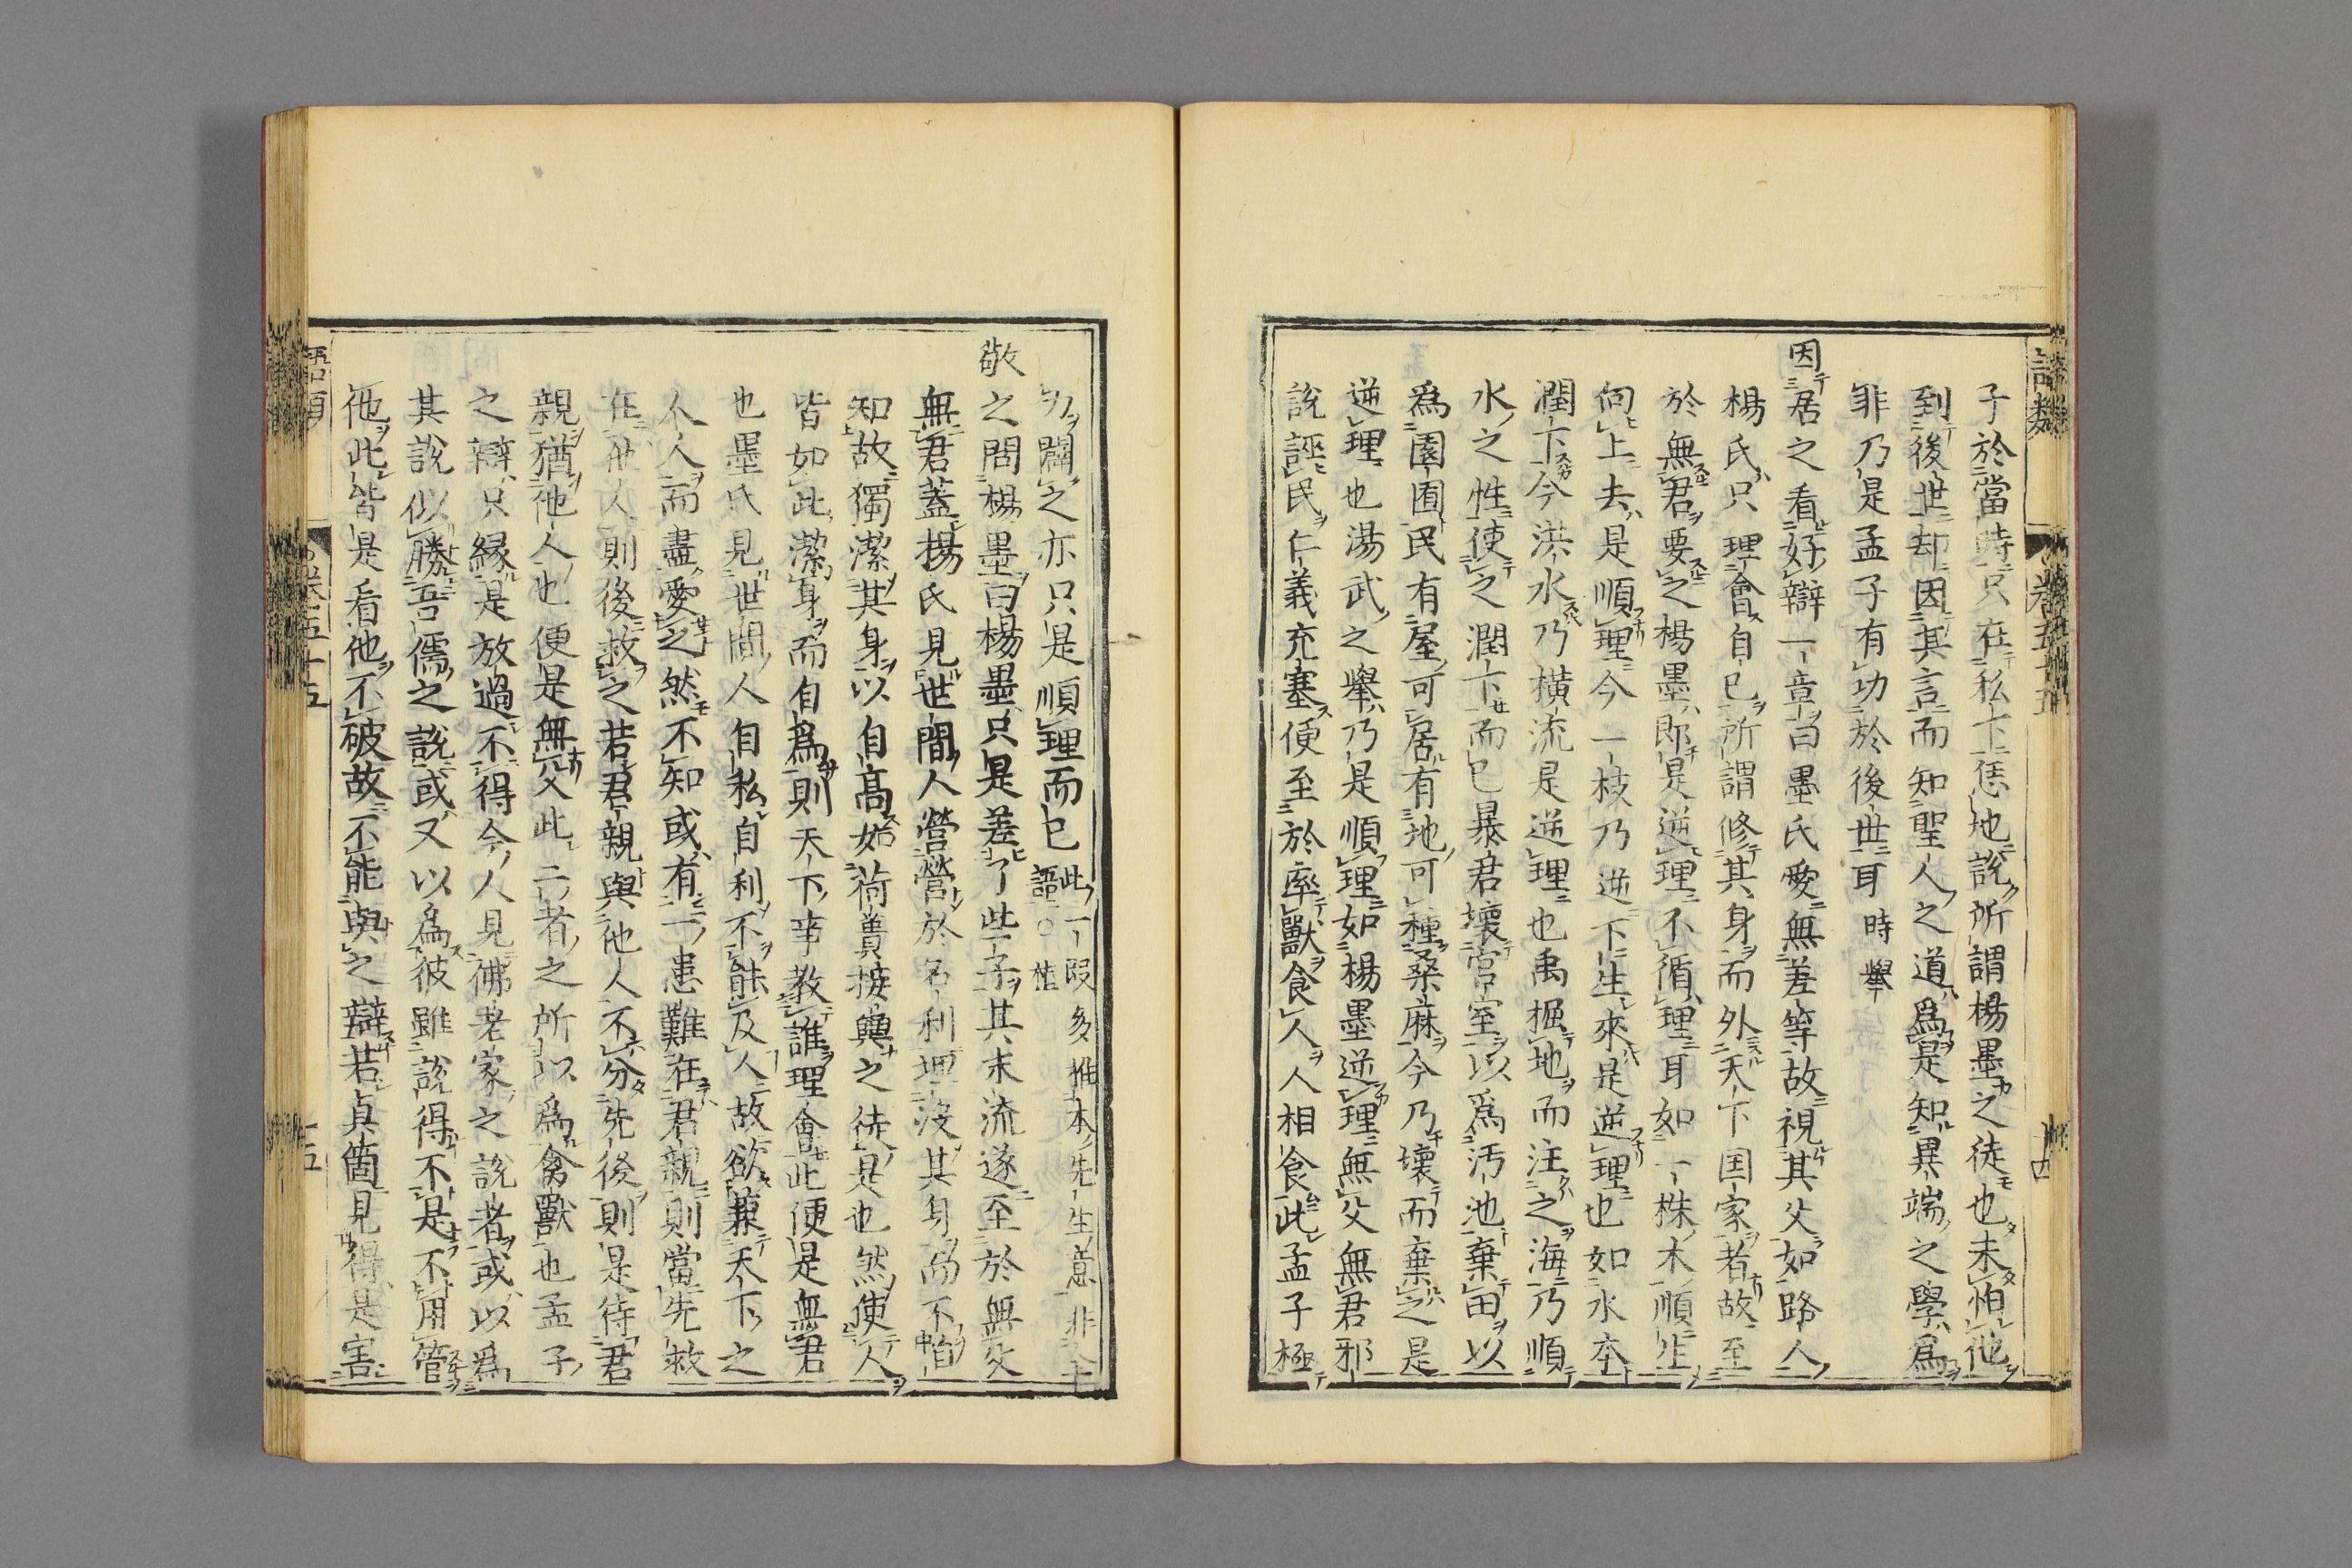 語類
卷五十五
十四
子於當時只在私下恁地說所謂楊墨之徒也未怕他
到後世却因其言而知聖人之道爲是知異端之學爲
非乃是孟子有功於後世耳 時擧
因居之看好辯一章曰墨氏愛無差等故視其父如路人
楊氏只理會自己所謂修其身而外天下国家者故至
於無君要之楊墨即是逆理不循理耳如一株木順生
向上去是順理今一枝乃逆下生來是逆理也如水本
潤下今洪水乃橫流是逆理也禹掘地而注之海乃順
水之性使之潤下而已暴君壞宮室以爲汚池棄田以
爲園囿民有屋可居有地可種桑麻今乃壞而棄之是
逆理也湯武之擧乃是順理如楊墨逆理無父無君邪
說誣民仁義充塞便至於率獸食人人相食此孟子極
力闢之亦只是順理而已 此一段多推本先生意非全
語○植
敬之問楊墨曰楊墨只是差了些子其末流遂至於無父
無君蓋楊氏見世間人營營於名利埋沒其身而不自
知故獨潔其身以自高如荷蕢接輿之徒是也然使人
皆如此潔身而自爲則天下事教誰理會此便是無君
也墨氏見世間人自私自利不能及人故欲兼天下之
人人而盡愛之然不知或有一患難在君親則當先救
在他人則後救之若君親與他人不分先後則是待君
親猶他人也便是無父此二者之所以爲禽獸也孟子
之辯只緣是放過不得今人見佛老家之說者或以爲
其說似勝吾儒之說或又以爲彼雖說得不是不用管
他此皆是看他不破故不能與之辯若真箇見得是害
語類
卷五十五
十五